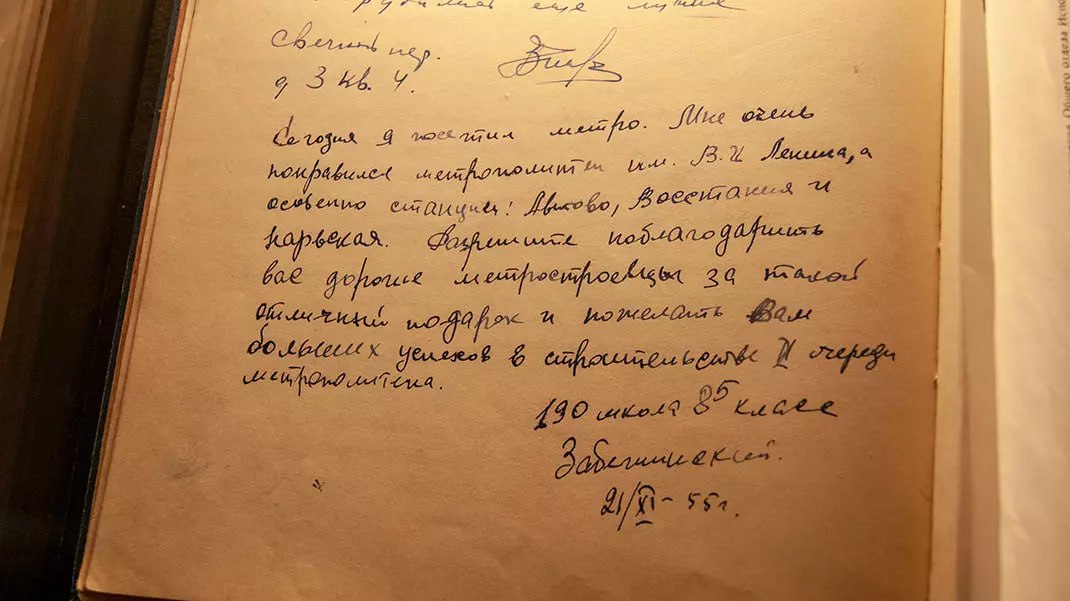 еще
Свечной пер.
д 3 кв. 4.
Сегодня я посетил метро. Мне очень
понравился метрополитен им. В. И Ленина, а
особенно станции: Автово, Восстания и
Нарвская. Разрешите поблагодарить
вас дорогие метростроевцы за такой
отличный подарок и пожелать Вам
больших успехов в строительстве II очереди
метрополитена.
190 школа 8⁵ класс
21/XI - 55 г.
Общего отдела Испо